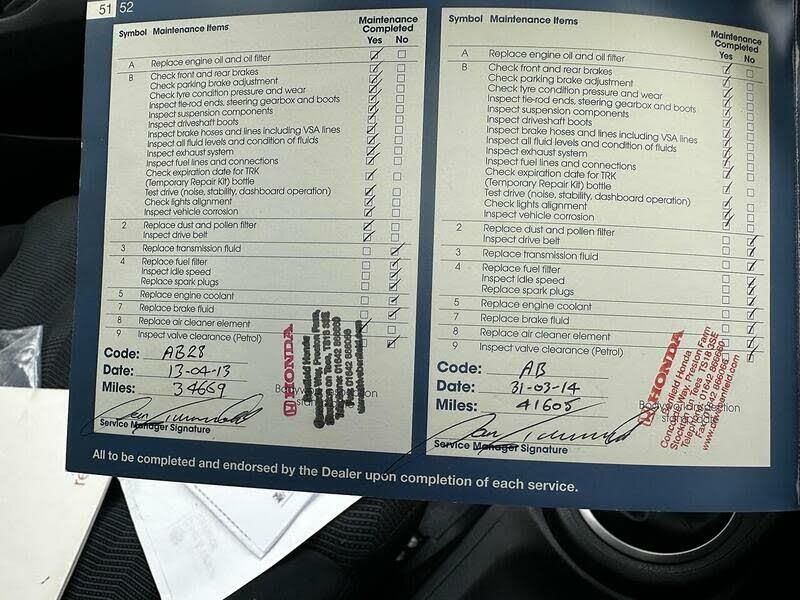 51 52
Symbol Maintenance Items
Maintenance Completed
Yes No
A Replace engine oil and oil filter
B Check front and rear brakes
Check parking brake adjustment
Check tyre condition pressure and wear
Inspect tie-rod ends, steering gearbox and boots
Inspect suspension components
Inspect driveshaft boots
Inspect brake hoses and lines including VSA lines
Inspect all fluid levels and condition of fluids
Inspect exhaust system
Inspect fuel lines and connections
Check expiration date for TRK
(Temporary Repair Kit) bottle
Test drive (noise, stability, dashboard operation)
Check lights alignment
Inspect vehicle corrosion
2 Replace dust and pollen filter
Inspect drive belt
3 Replace transmission fluid
4 Replace fuel filter
Inspect idle speed
Replace spark plugs
5 Replace engine coolant
7 Replace brake fluid
8 Replace air cleaner element
9 Inspect valve clearance (Petrol)
Code: AB28
Date: 13-04-13
Miles: 34669
Service Manager Signature
HONDA
Symbol Maintenance Items
Maintenance Completed
Yes No
A Replace engine oil and oil filter
B Check front and rear brakes
Check parking brake adjustment
Check tyre condition pressure and wear
Inspect tie-rod ends, steering gearbox and boots
Inspect suspension components
Inspect driveshaft boots
Inspect brake hoses and lines including VSA lines
Inspect all fluid levels and condition of fluids
Inspect exhaust system
Inspect fuel lines and connections
Check expiration date for TRK
(Temporary Repair Kit) bottle
Test drive (noise, stability, dashboard operation)
Check lights alignment
Inspect vehicle corrosion
2 Replace dust and pollen filter
Inspect drive belt
3 Replace transmission fluid
4 Replace fuel filter
Inspect idle speed
Replace spark plugs
5 Replace engine coolant
7 Replace brake fluid
8 Replace air cleaner element
9 Inspect valve clearance (Petrol)
Code: AB
Date: 31-03-14
Miles: 41605
Service Manager Signature
HONDA
Honda
Way, Preston Farm
Stockton on Tees, TS18 3SE
All to be completed and endorsed by the Dealer upon completion of each service.